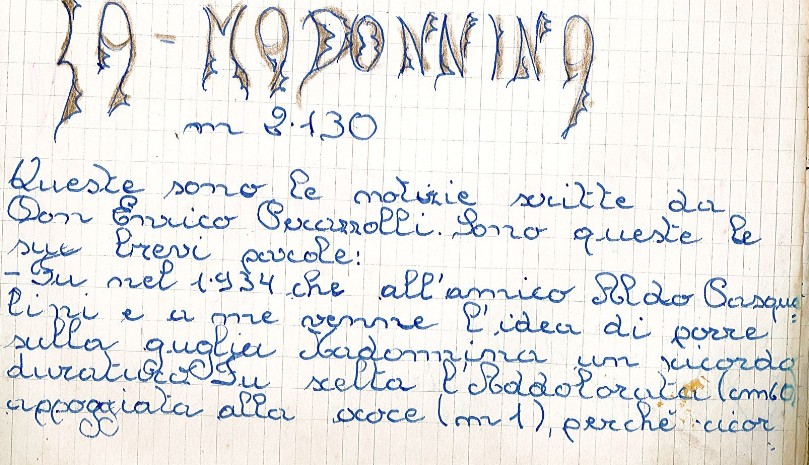 LA - MADONNINA
m 2.130
Queste sono le notizie scritte da
Don Enrico Pecazzolli. Sono queste le
sue brevi parole:
- Fu nel 1.934 che all'amico Aldo Pasqua
lini e a me venne l'idea di porre
sulla guglia Madonnina un ricordo
duraturo. Fu scelta l'Addolorata (cm 60,
appoggiata alla croce (m 1), perché ricor